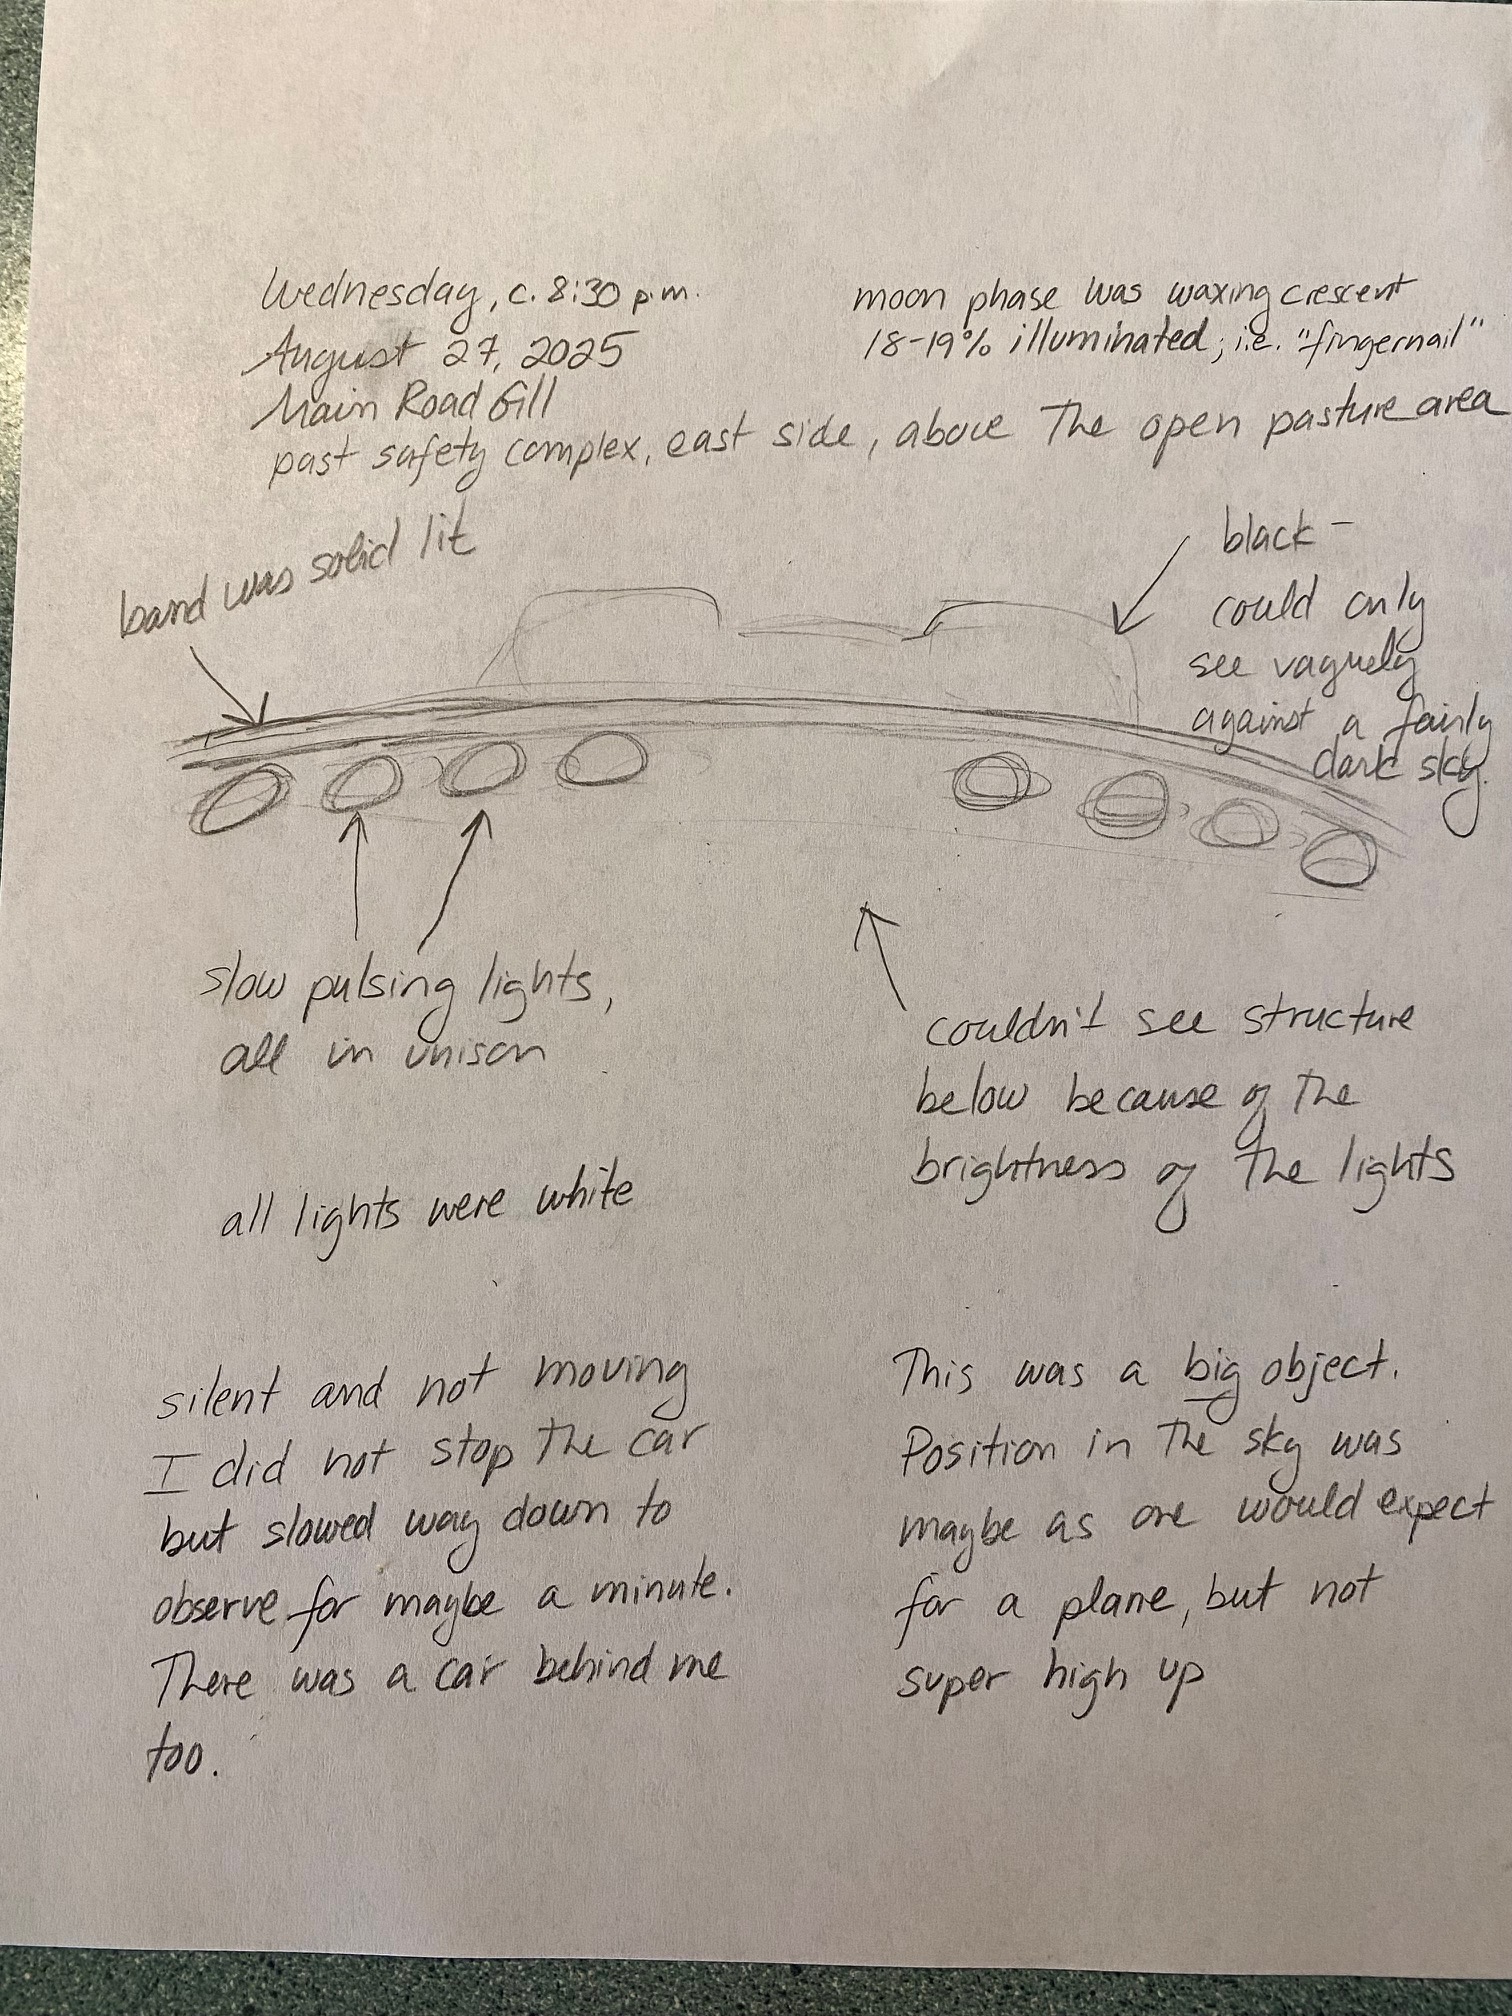 Wednesday, c. 8:30 p.m.
August 27, 2025
Main Road Gill
past safety complex, east side, above the open pasture area
moon phase was waxing crescent
18-19% illuminated; i.e. "fingernail"
band was solid lit
black -
could only
see vaguely
against a fairly
dark sky.
slow pulsing lights,
all in unison
couldn't see structure
below because of the
brightness of the lights
all lights were white
silent and not moving
I did not stop the car
but slowed way down to
observe for maybe a minute.
There was a car behind me
too.
This was a big object.
Position in the sky was
maybe as one would expect
for a plane, but not
super high up